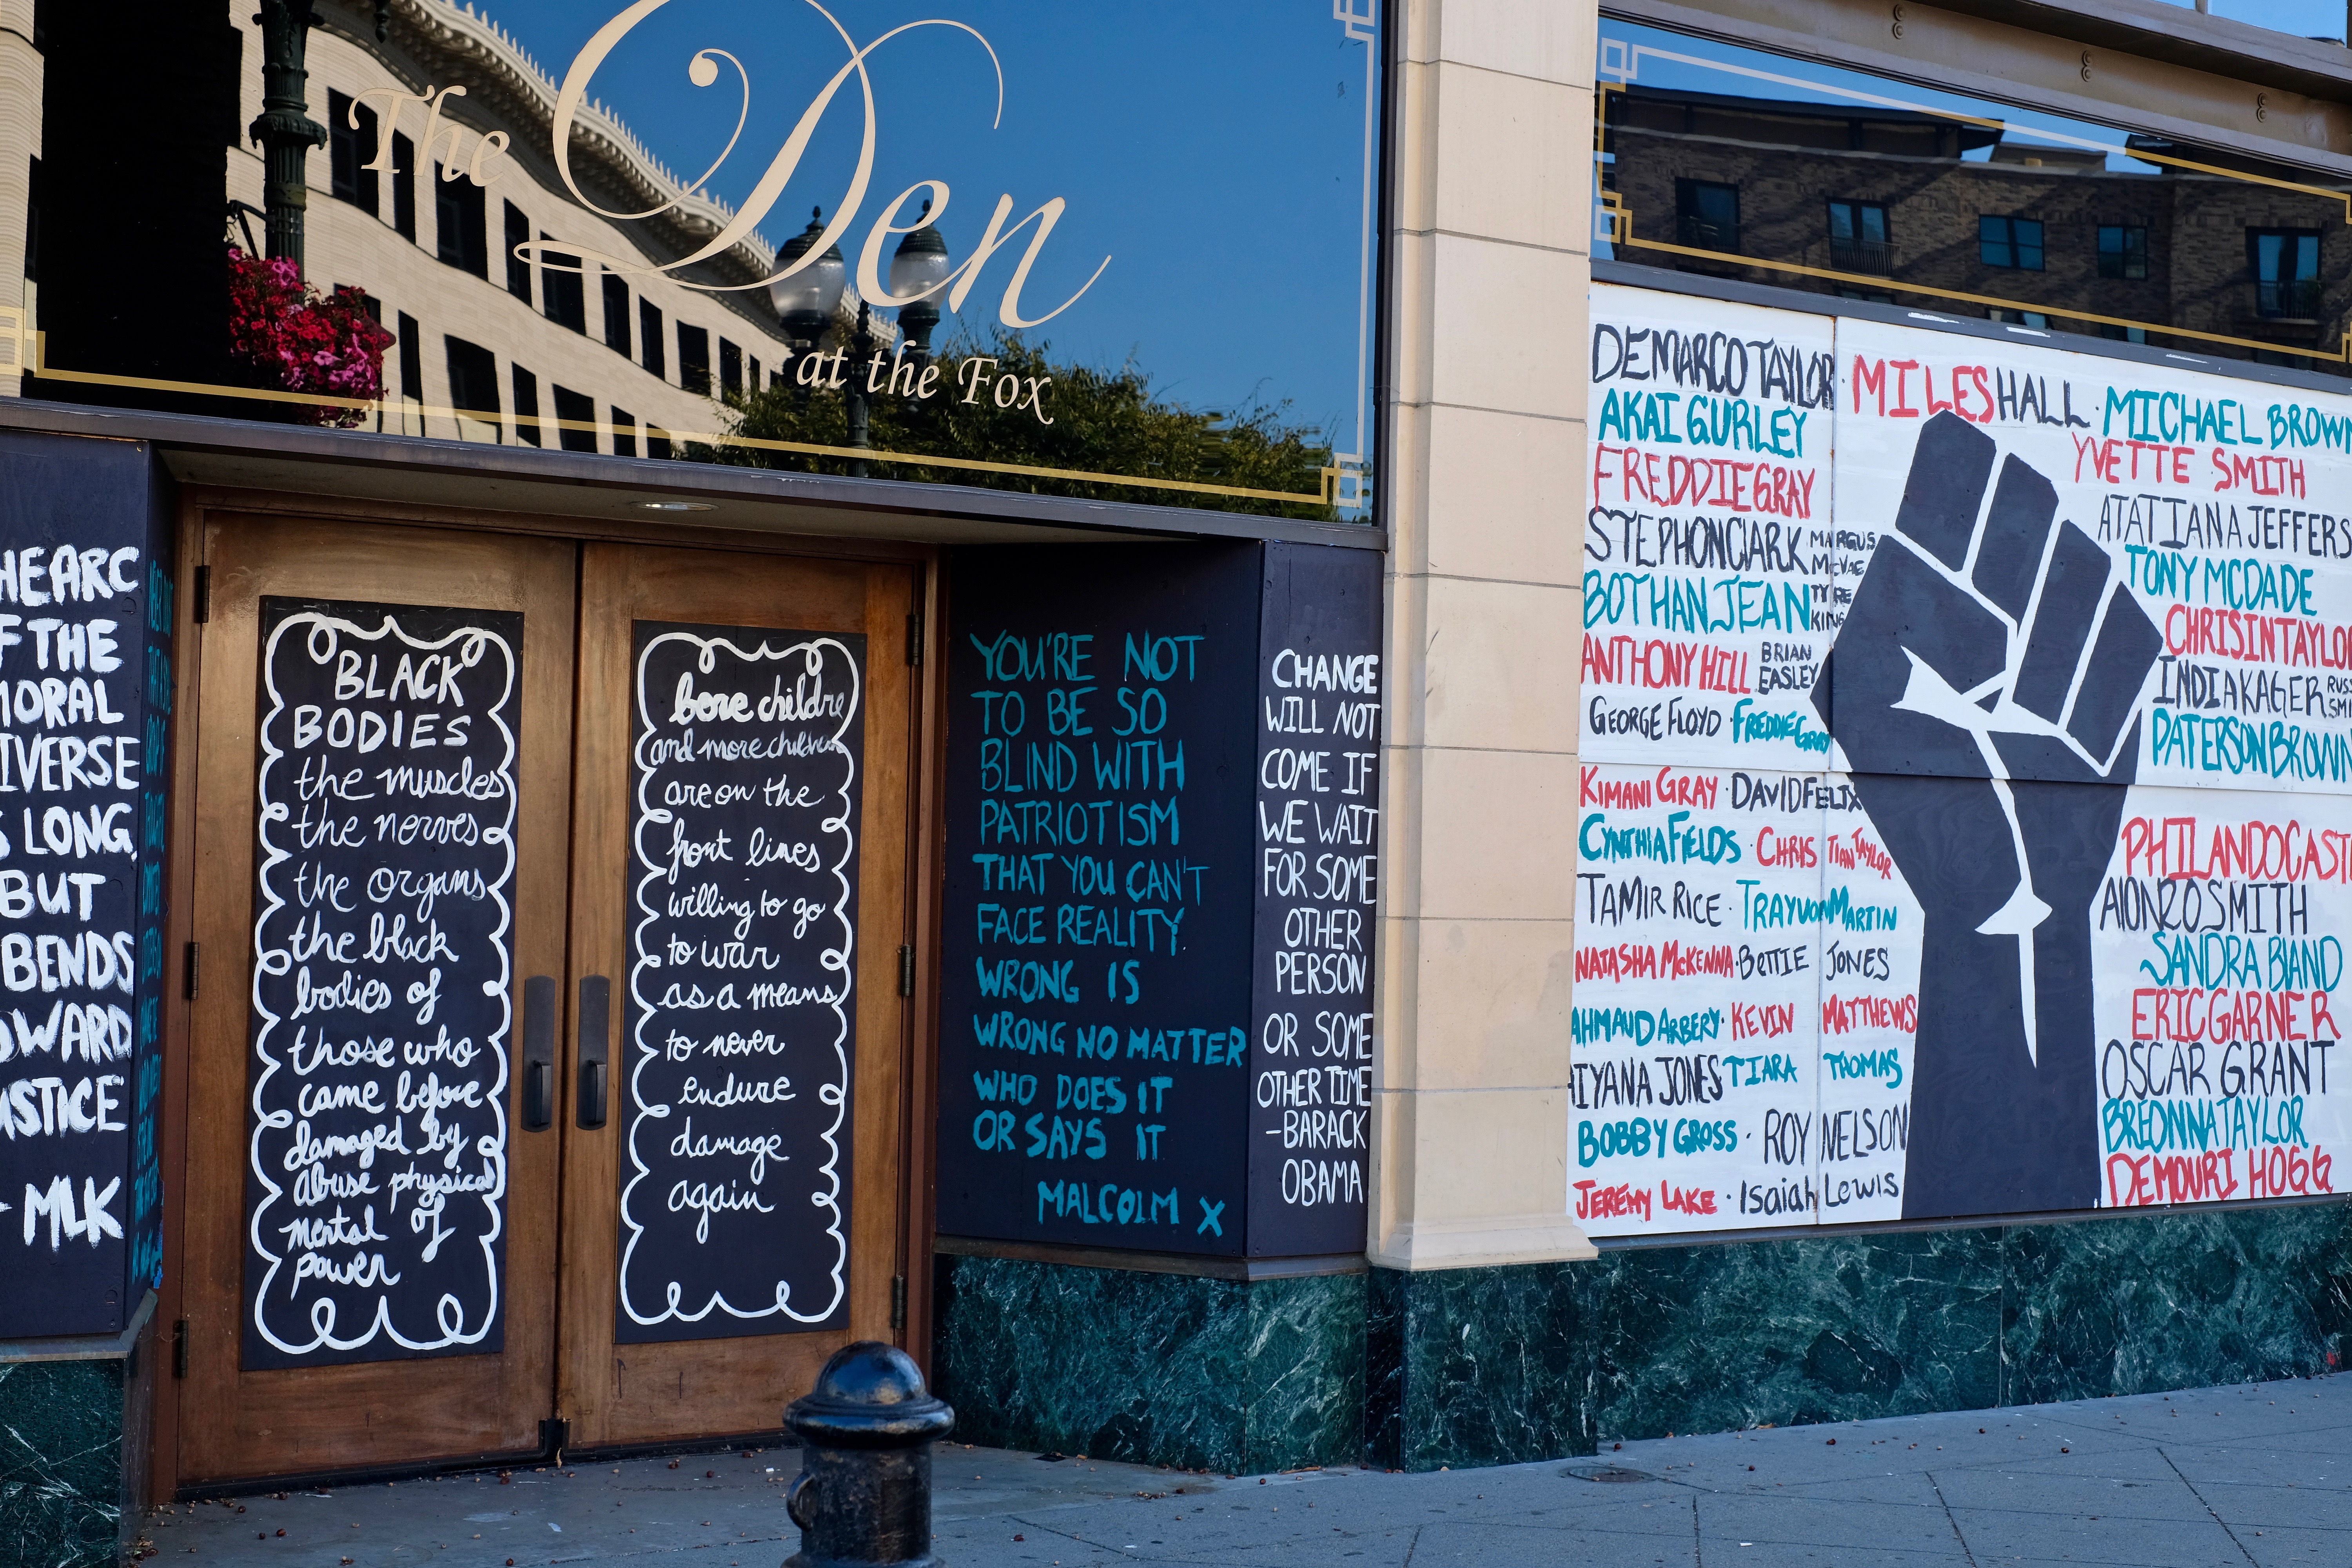 The Den
at the Fox
THE ARC
OF THE
MORAL
UNIVERSE
IS LONG,
BUT
BENDS
TOWARD
JUSTICE
- MLK
BLACK
BODIES
the muscles
the nerves
the organs
the black
bodies of
those who
came before
damaged by
abuse physical
mental of
power
bore childre
and more children
are on the
front lines
willing to go
to war
as a means
to never
endure
damage
again
YOU'RE NOT
TO BE SO
BLIND WITH
PATRIOTISM
THAT YOU CAN'T
FACE REALITY.
WRONG IS
WRONG NO MATTER
WHO DOES IT
OR SAYS IT
MALCOLM X
CHANGE
WILL NOT
COME IF
WE WAIT
FOR SOME
OTHER
PERSON
OR SOME
OTHER TIME
-BARACK
OBAMA
DEMARCO TAYLOR · MILES HALL · MICHAEL BROWN
AKAI GURLEY
YVETTE SMITH
FREDDIE GRAY
ATATIANA JEFFERS
STEPHON CLARK
MARQUS
MCVAE
TONY MCDADE
BOTHAN JEAN
TYRE
KING
CHRISINTAYLOR
ANTHONY HILL
BRIAN
EASLEY
INDIA KAGER
RUSS
SMI
GEORGE FLOYD · FREDDIE GRAY
PATERSON BROWN
KIMANI GRAY · DAVID FELIX
CYNTHIA FIELDS · CHRISTIAN TAYLOR
PHILANDO CASTI
TAMIR RICE · TRAYVON MARTIN
ALONZO SMITH
NATASHA MCKENNA · BETTIE JONES
SANDRA BLAND
AHMAUD ARBERY · KEVIN MATTHEWS
ERIC GARNER
AIYANA JONES TIARA THOMAS
OSCAR GRANT
BOBBY GROSS · ROY NELSON
BREONNA TAYLOR
JEREMY LAKE · Isaiah Lewis
DEMOURI HOGG